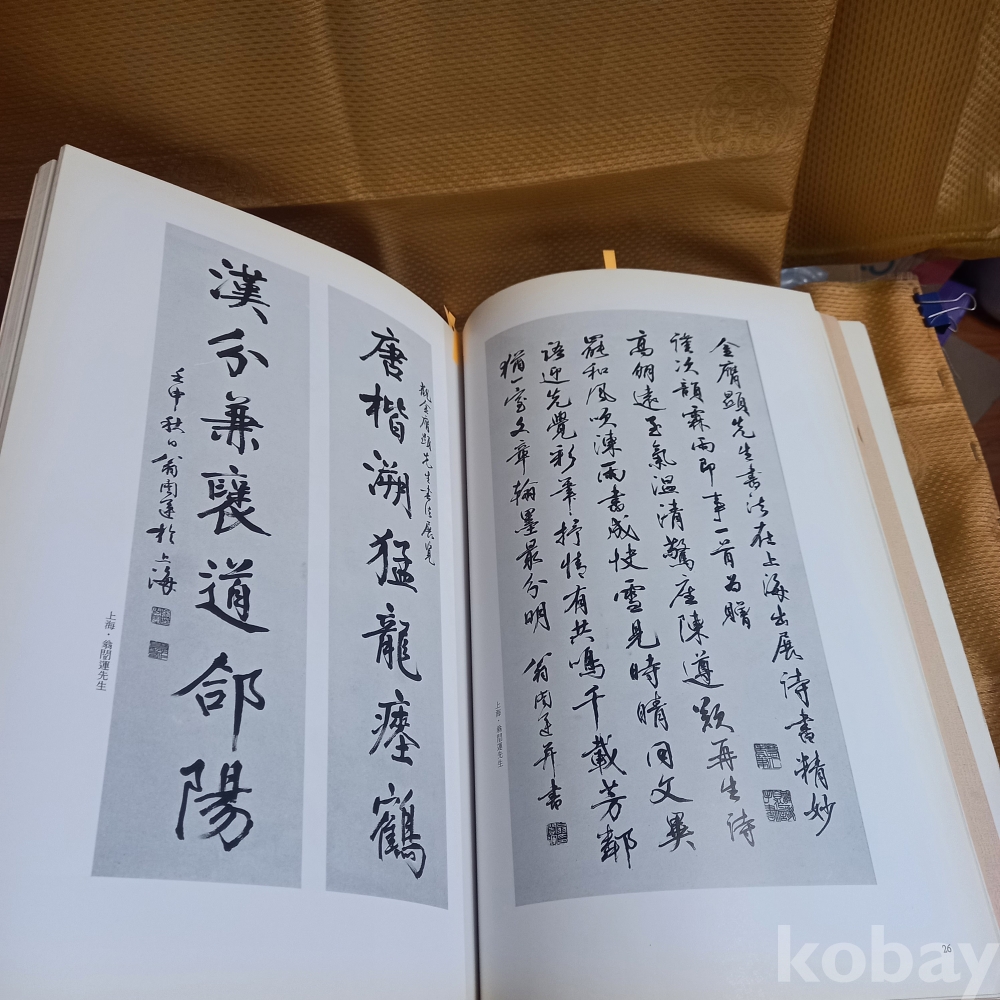 金膺顯先生書法在上海出展詩書精妙
謹次韻霖雨即事一首為贈
高朋遠至氣温清驚座陳遵歎再生詩
罷和風吹凍雨書成快雪見時晴同文異
語迎先覺彩筆抒情有共鳴千載芳鄰
猶一室文章翰墨最分明 翁闓運并書
上海・翁闓運先生
26
觀金膺顯先生書法展覽
唐楷溯猛龍瘞鶴
漢分兼襃道郃陽
壬申秋日翁闓運於上海
上海・翁闓運先生
kobay